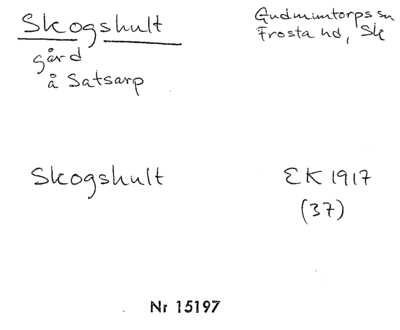 Skogshult
gård
å Satsarp
Gudmuntorps sn
Frosta hd, Sk
Skogshult
EK 1917
(37)
Nr 15197